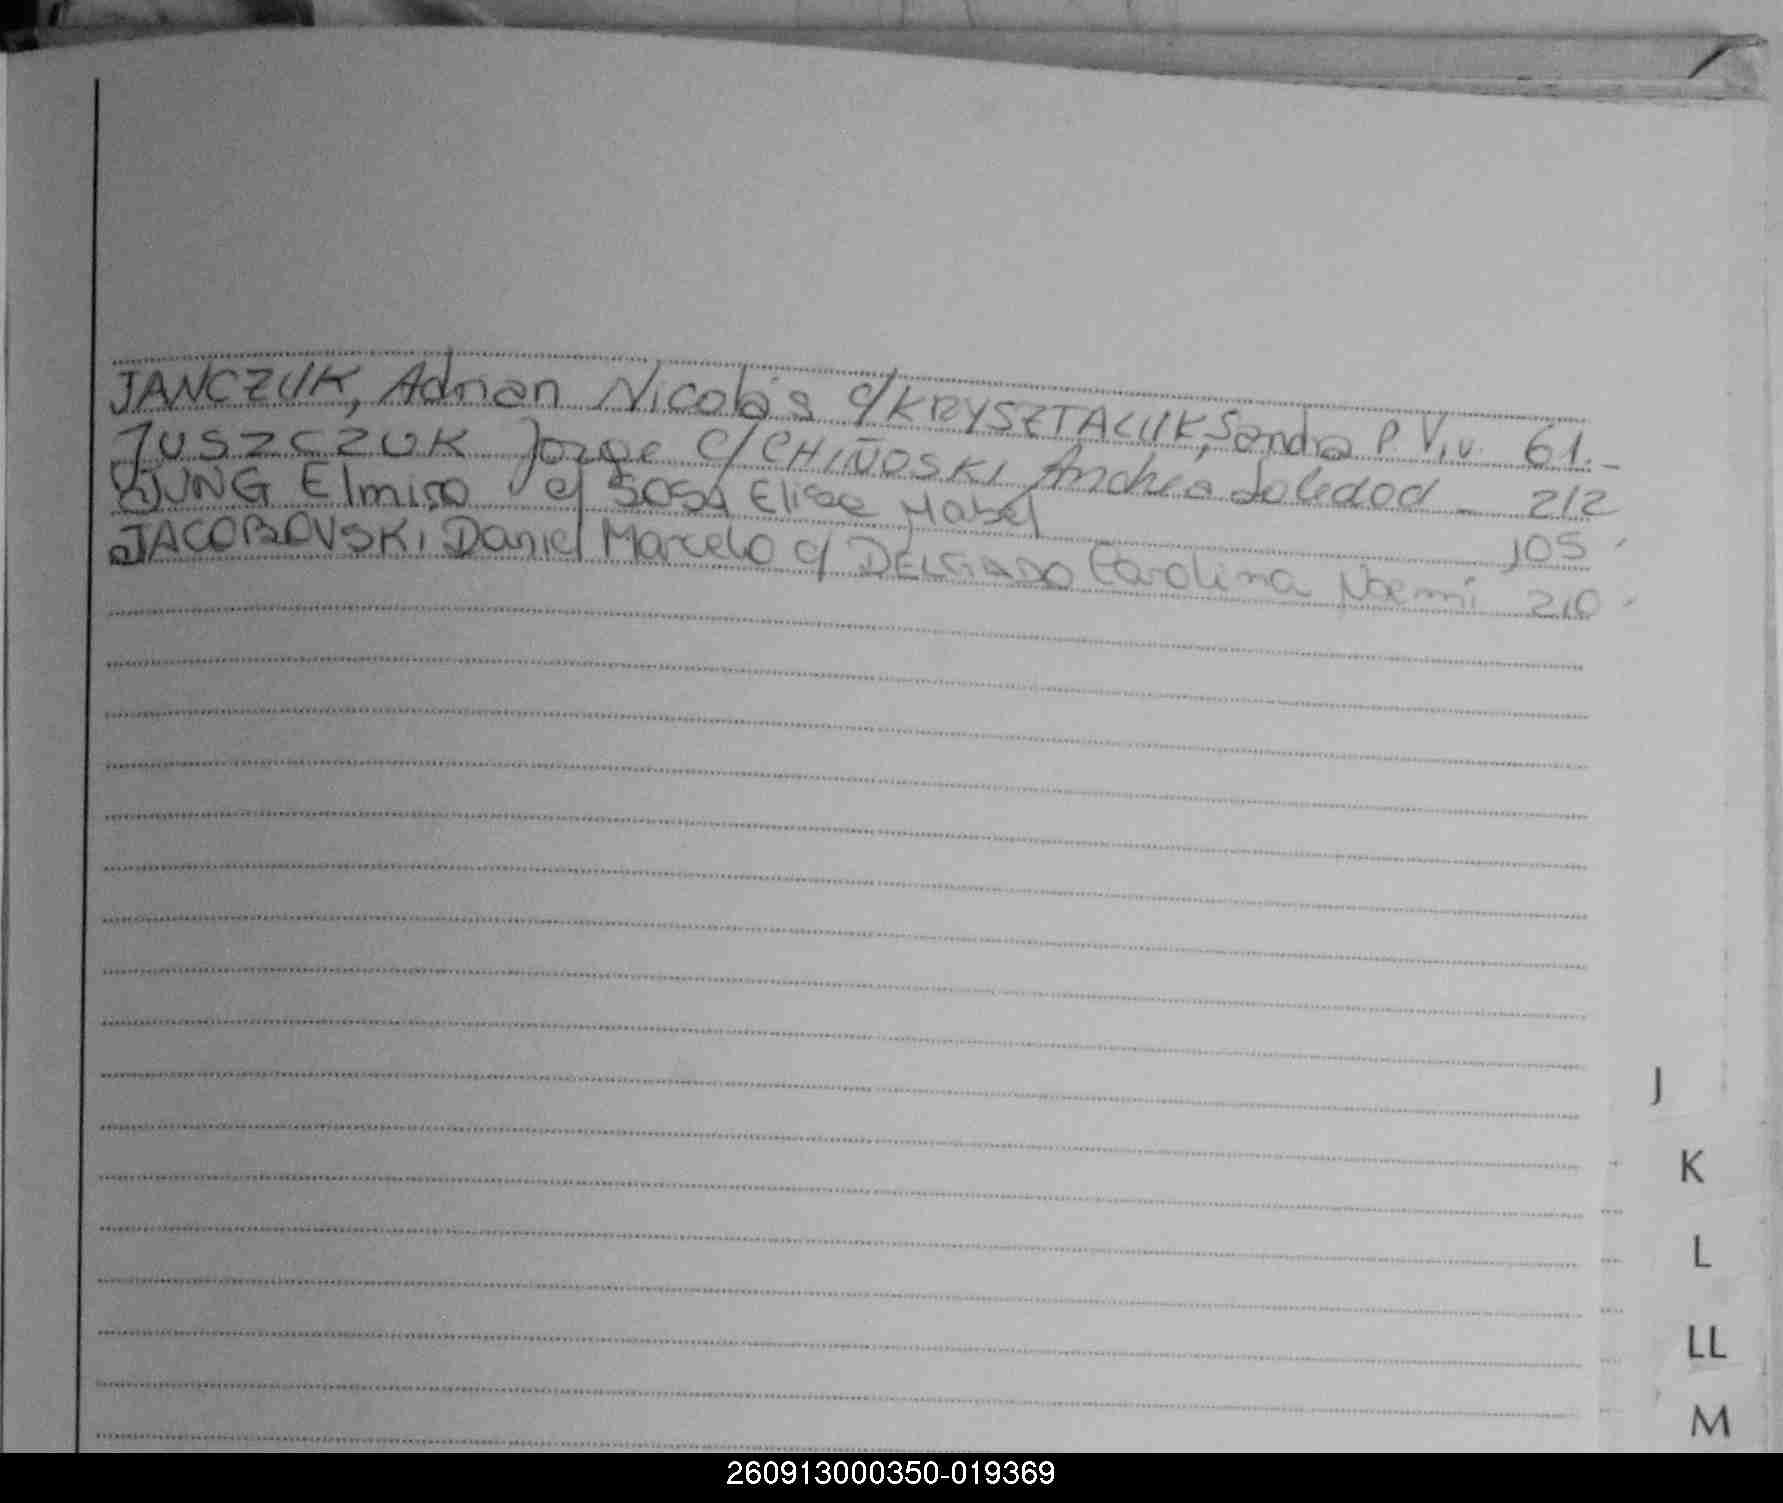 JANCZUK, Adrian Nicolás c/KRYSZTACUK, Sandra P. Viv. 61.-
JUSZCZUK Jorge c/CHIÑOSKI Andrea Soledad - 212
JUNG Elmiro c/ SOSA Elisa Mabel 105
JACOBOVSKI, Daniel Marcelo c/ DELGADO Carolina Noemí 210
J
K
L
LL
M
260913000350-019369